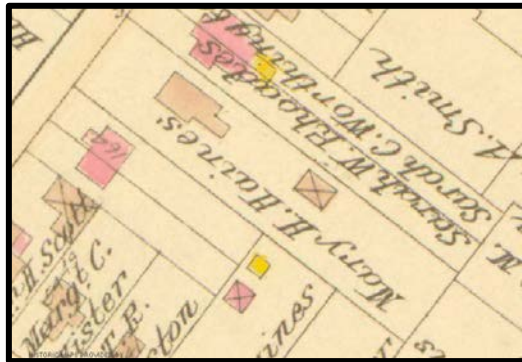 A. Smith
Sarah C. Worthing
Sarah W. Rhoades
Mary H. Haines
H. Scott
Margt. C.
ister
T. R.
ton
ines
M.